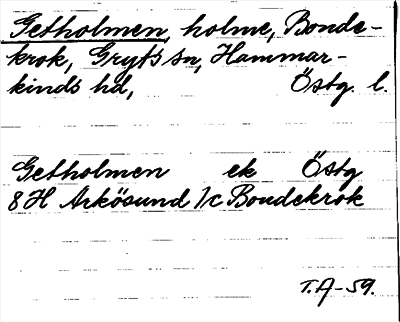 Getholmen, holme, Bonde-
krok, Gryts sn, Hammar-
kinds hd, Östg. l.
Getholmen ek Östg
8H Arkösund 1c Bondekrok
T.A-59.